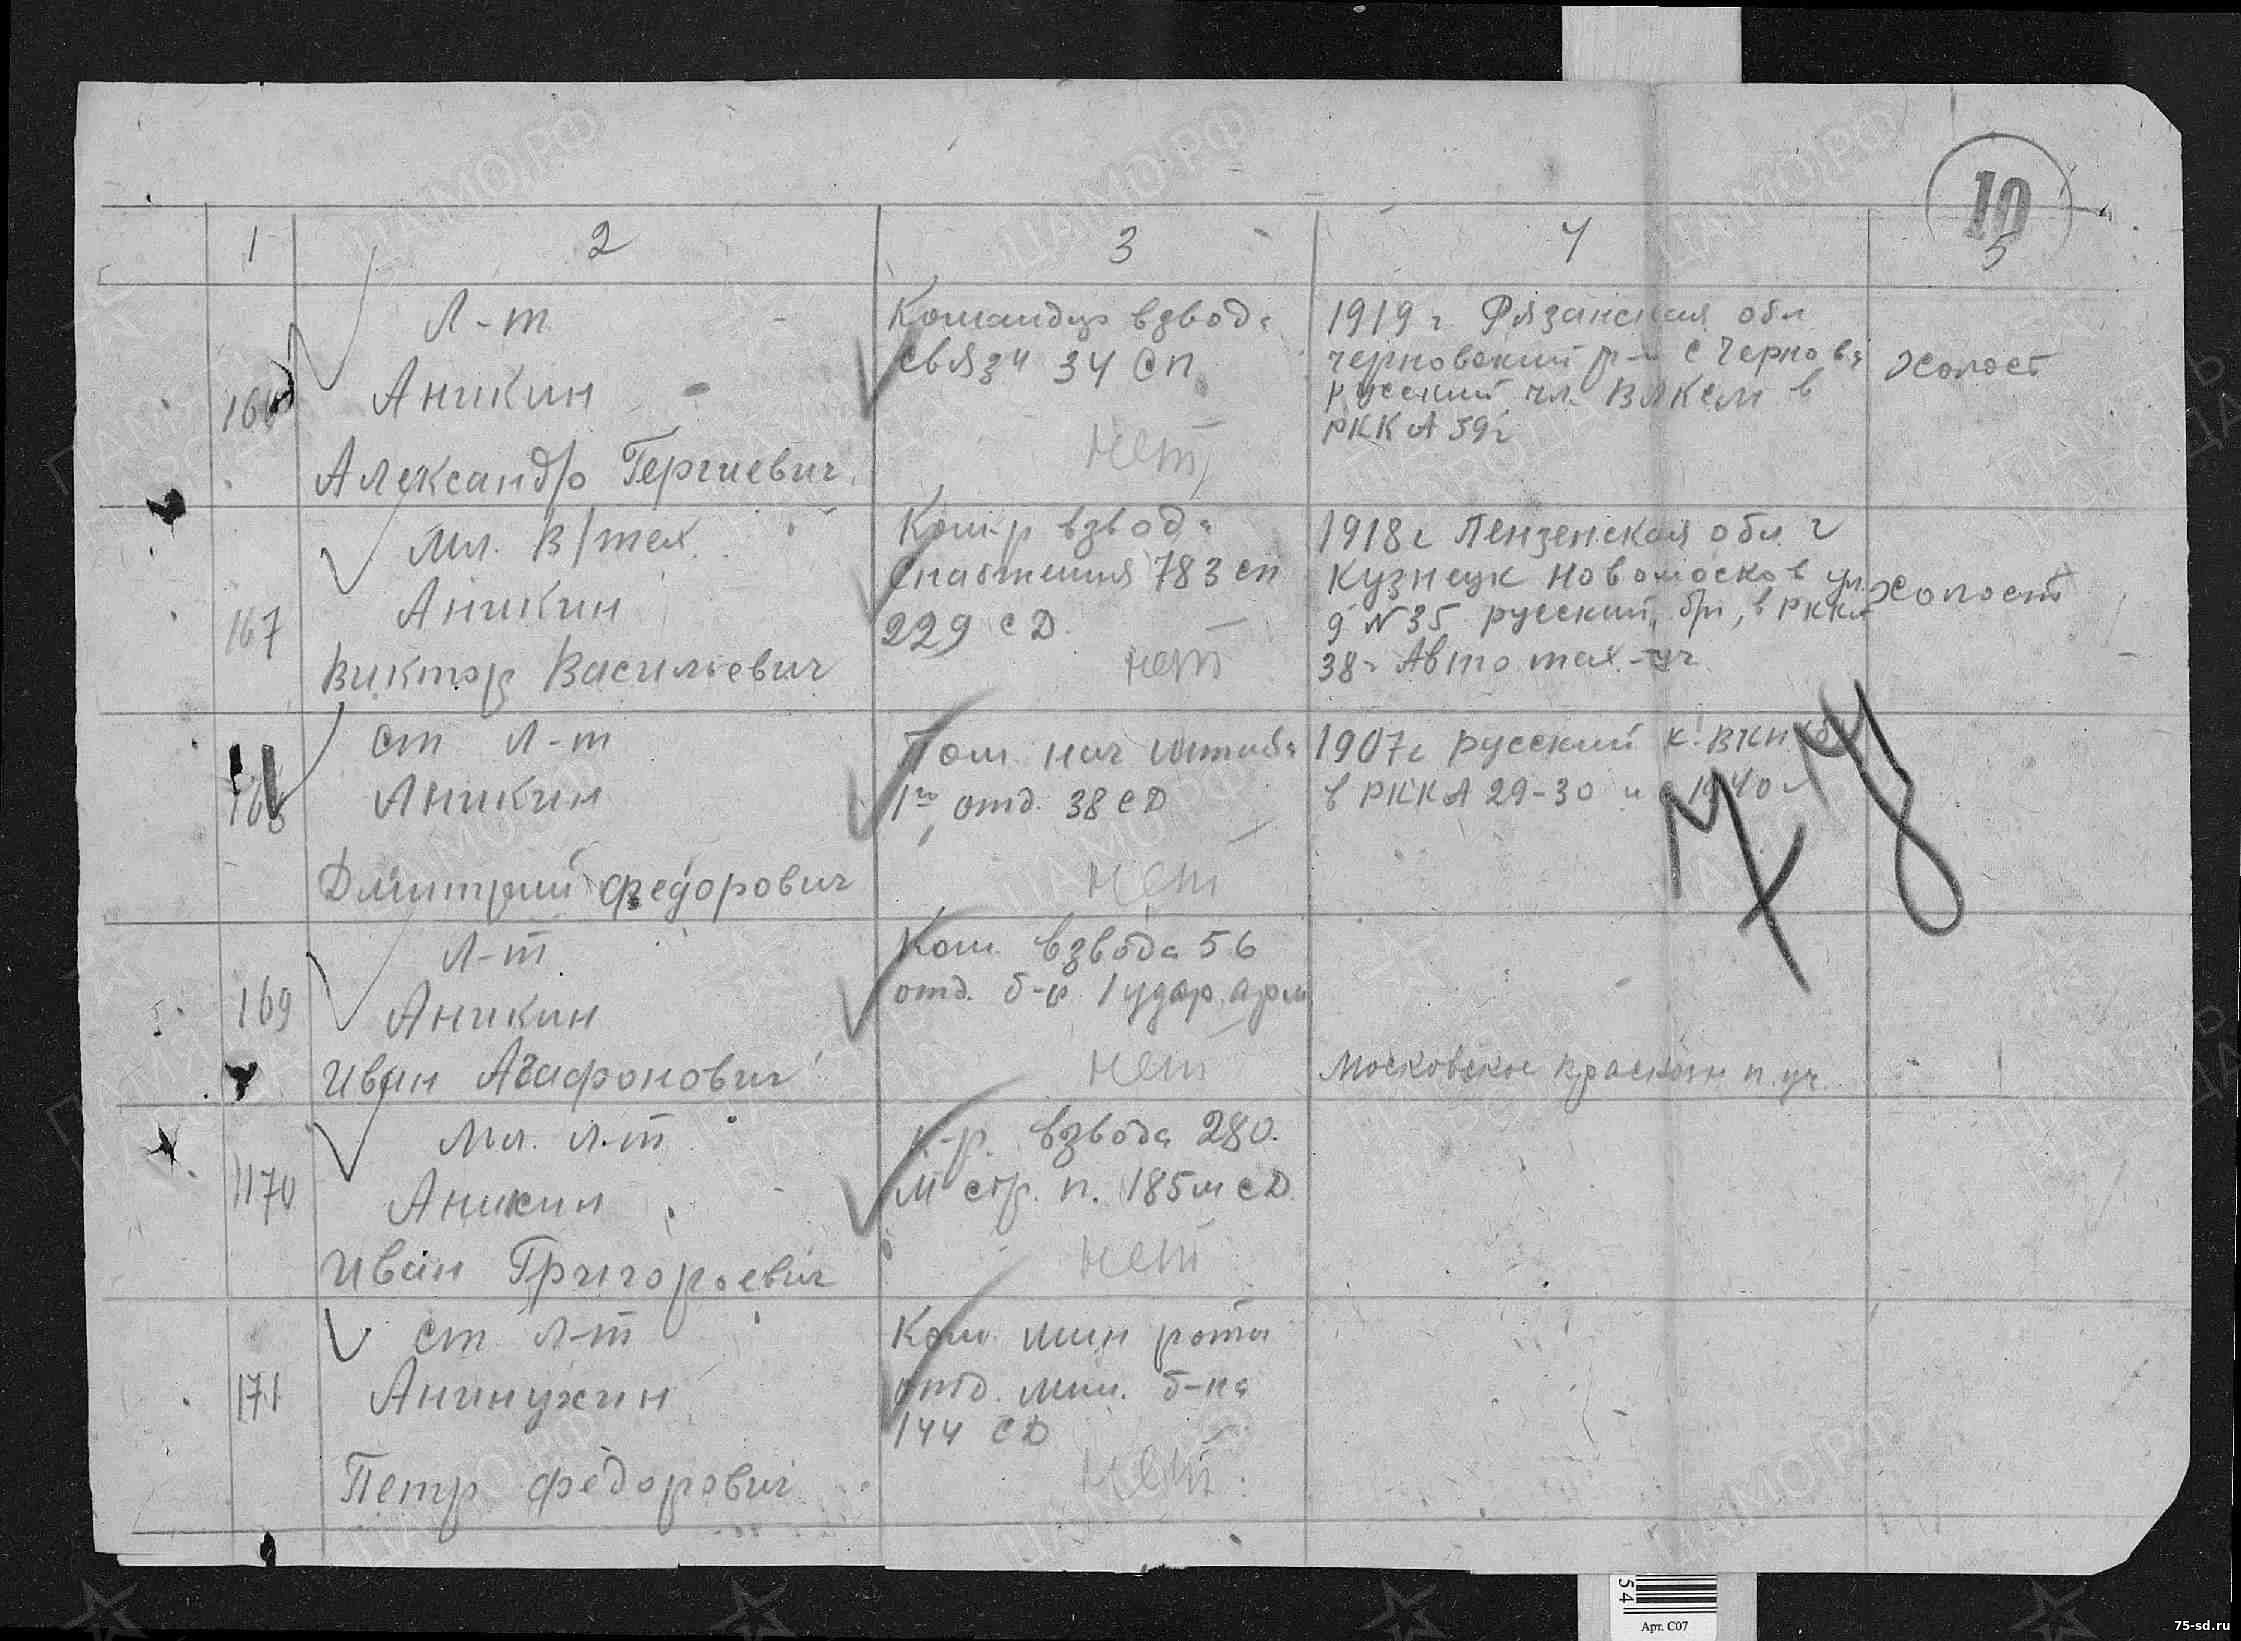 10
1 2 3 4 5
166
Л-т
Аникин
Александр Гергиевич
Командир взвода
связи 34 СП
нет
1919 г Рязанская обл
черновский р-н с Чернова
русский чл. ВЛКСМ в
РККА 39г
Холост
167
Мл. В/тех.
Аникин
Виктор Васильевич
Ком-р взвода
Снабжения 783 сп
229 СД.
нет
1918г Пензенская обл. г
Кузнецк Новомосков ул
д N 35 русский, бп, в РККА
38г Авто тех-уч
Холост
168
Ст Л-т
Аникин
Дмитрий Федорович
Пом нач штаба
1го отд. 38 СД
нет
1907г русский к. ВКП б
в РККА 29-30 и с 1940 г
169
Л-т
Аникин
Иван Агафонович
Ком. взвода 56
отд. б-н 1 удар. арм
нет
Московское краснозн п. уч.
1170
Мл. л-т
Аникин
Иван Григорьевич
К-р. взвода 280.
М стр. п. 185 м СД.
нет
171
Ст л-т
Анинухин
Петр Федорович
Ком. мин роты
отд. мин. б-на
144 СД
нет
54
Арт. С07
75-sd.ru
ЦАМО.РФ